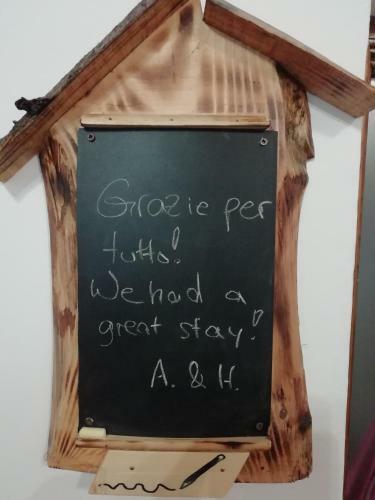 Grazie per
tutto!
We had a
great stay!
A. & H.